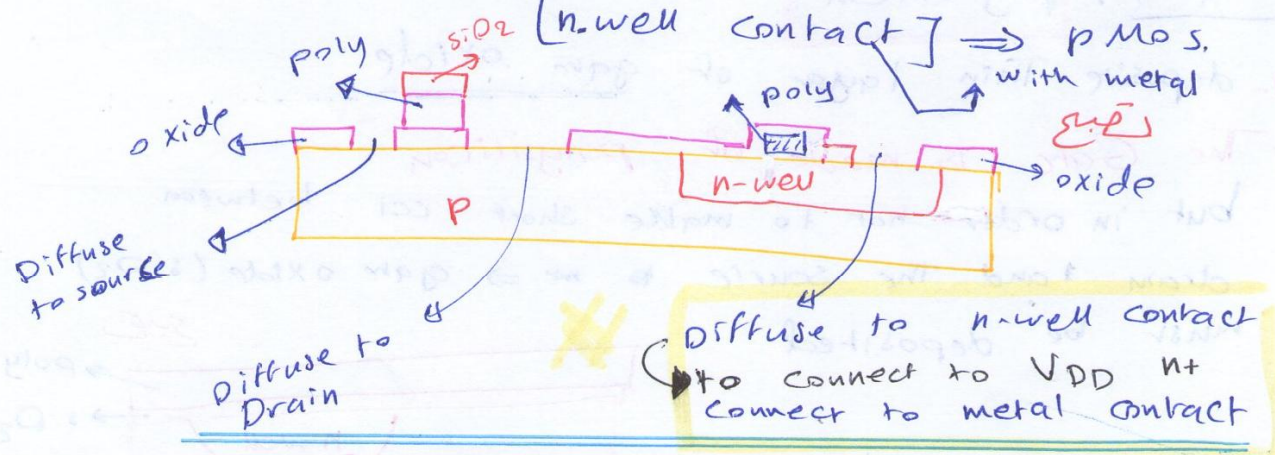 [n.well contact] ⇒ pMos.
with metal
poly
siO2
poly
oxide
n-well
oxide
P
Diffuse
to source
Diffuse to
Drain
Diffuse to n-well contact
to connect to VDD n+
connect to metal contact